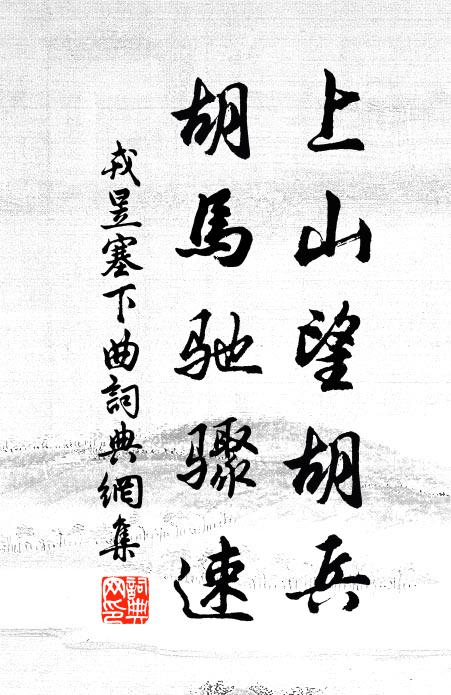 上山望胡兵
胡馬馳驟速
戎昱塞下曲詞典網集
詞典
网印